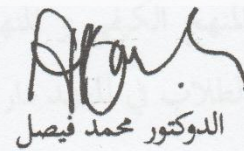 الدوكتور محمد فيصل